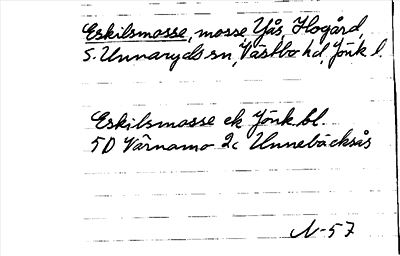 Eskilsmosse, mosse Yås, Hogård,
S. Unnaryds sn, Västbo hd, Jönk l.
Eskilsmosse ek Jönk bl.
5D Värnamo 2c Unnebäcksås
N-57